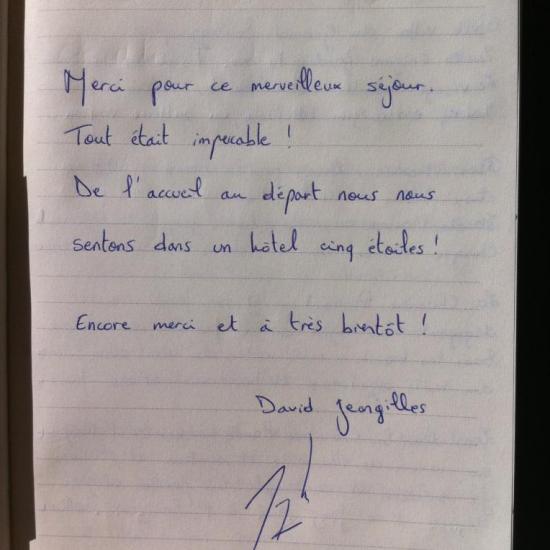 Merci pour ce merveilleux séjour.
Tout était impeccable !
De l'accueil au départ nous nous
sentons dans un hôtel cinq étoiles !
Encore merci et à très bientôt !
David Jeangilles